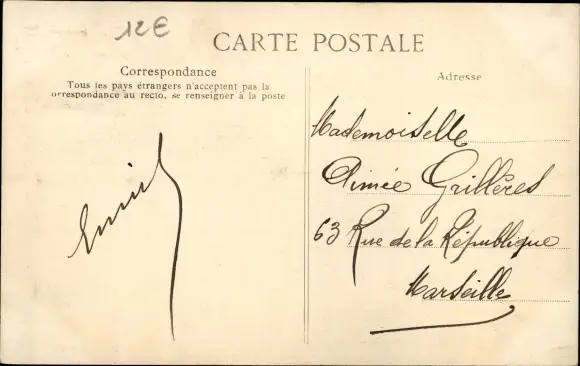 12€
CARTE POSTALE
Correspondance
Tous les pays étrangers n'acceptent pas la
orrespondance au recto, se renseigner à la poste
Adresse
Mademoiselle
Aimée Grillères
63 Rue de la République
Marseille
Emile